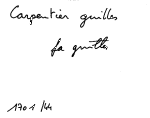 Carpentier quilles
fa quilles
1701/44